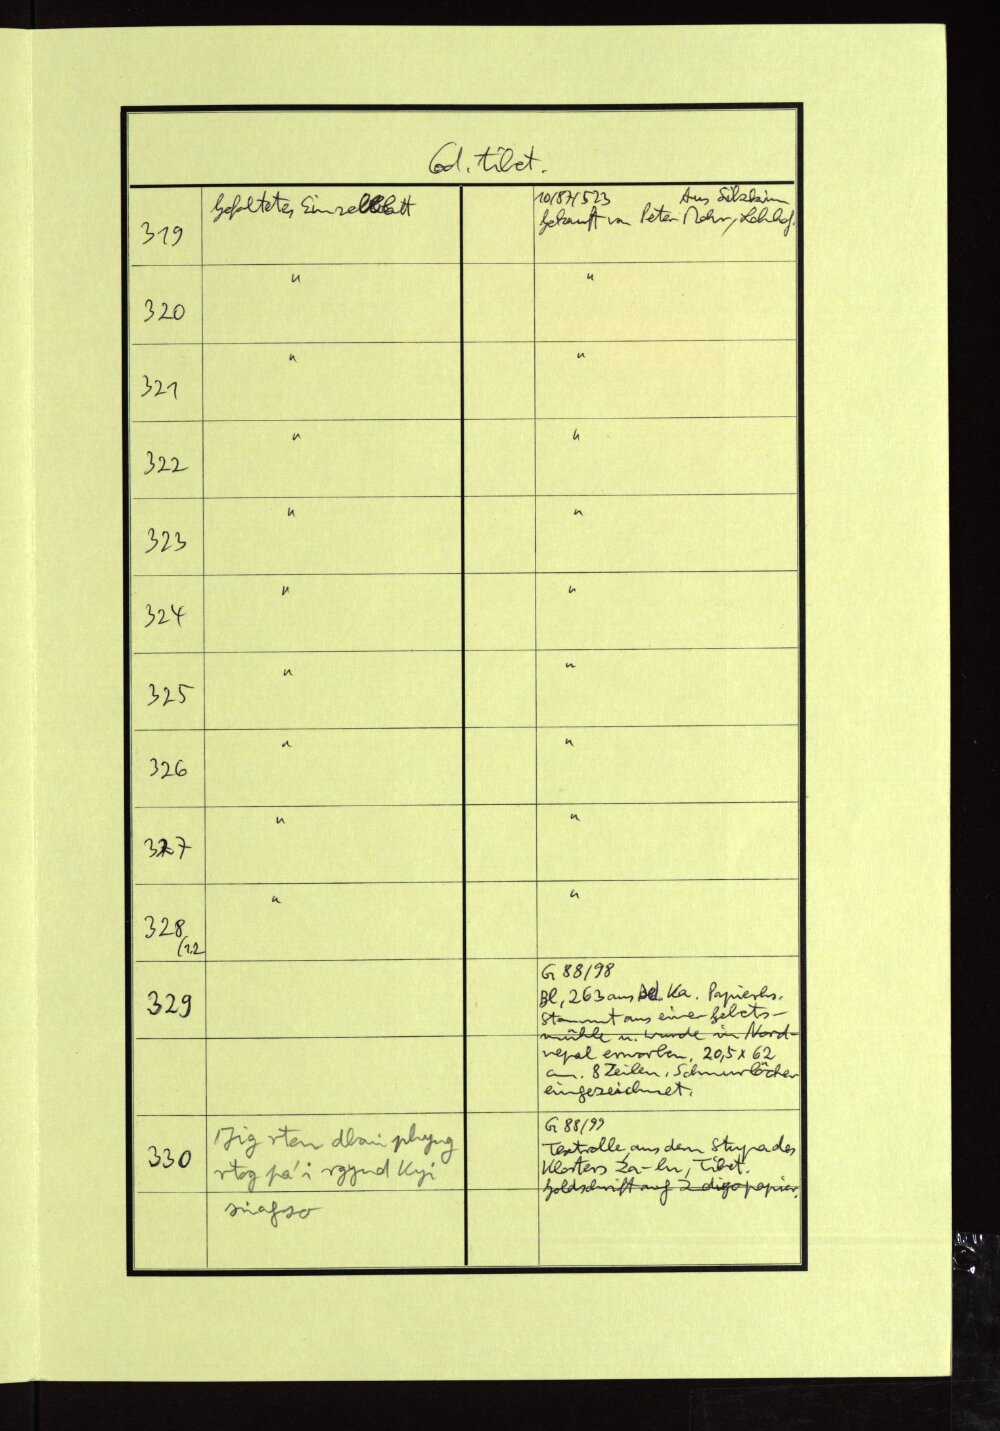 Cod. tibet.
319 Gefaltetes Einzelblatt 10/87/523 Aus Sikkim
Gekauft von Peter Mohr,
320 " "
321 " "
322 " "
323 " "
324 " "
325 " "
326 " "
327 " "
328 " "
(1.2
G 88/98
329 Bl. 263 aus Bd. Ka. Papierhs.
Stammt aus einer Gebets-
mühle u. wurde in Nord-
nepal erworben. 20,5 x 62
cm. 8 Zeilen. Schnurlöcher
eingezeichnet.
G 88/99
330 'Jig rten dban phyug Textrolle aus dem Stupa des
rtog pa'i rgyud kyi Klosters Za-lu, Tibet.
sñagso Goldschrift auf Indigopapier.